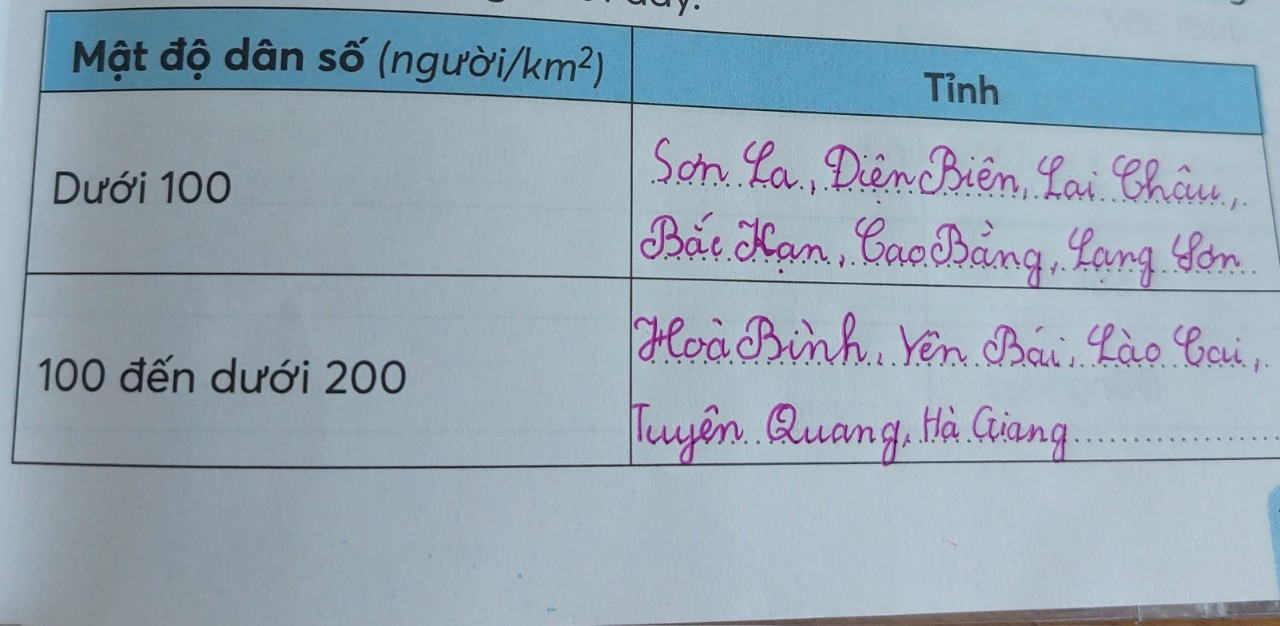 Mật độ dân số (người/km²)
Tỉnh
Dưới 100
Sơn La, Điện Biên, Lai Châu,
Bắc Kạn, Cao Bằng, Lạng Sơn
100 đến dưới 200
Hoà Bình, Yên Bái, Lào Cai,
Tuyên Quang, Hà Giang